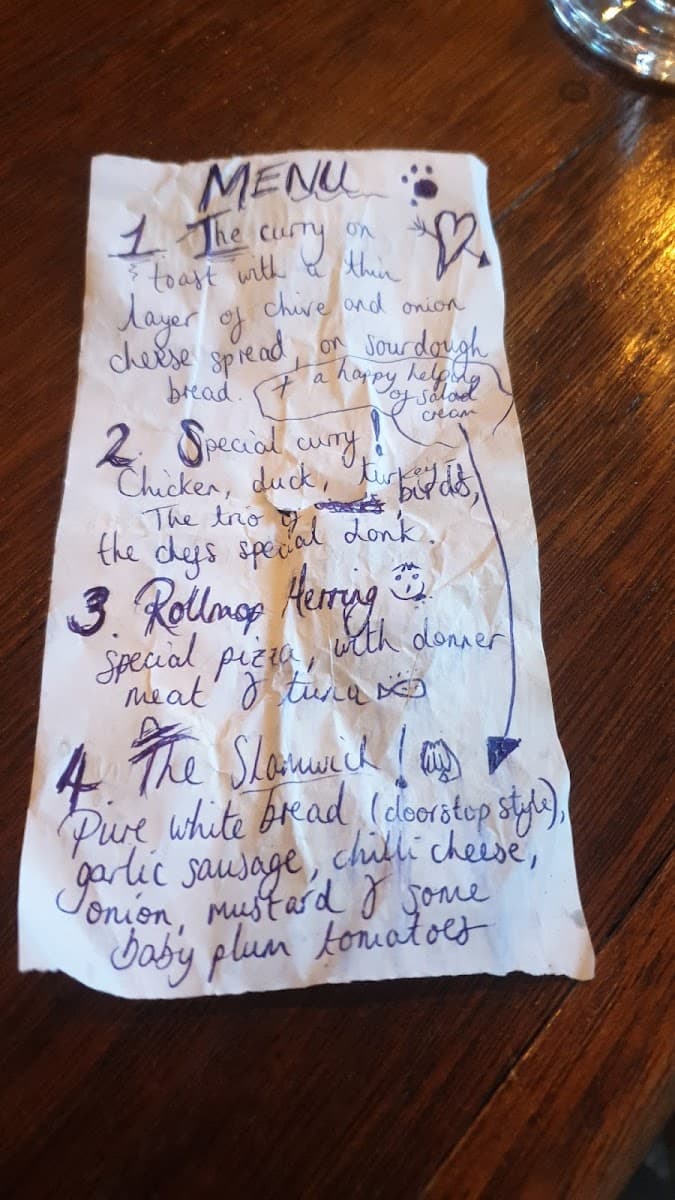 MENU
1 The curry on
toast with a thin
layer of chive and onion
cheese spread, on sourdough
bread.
+ a happy helping
of salad
cream
2. Special curry!
Chicken, duck, turkey =
The trio of birds,
the chefs special donk.
3. Rollmop Herring
Special pizza, with donner
meat & tuna
4 The Slamwich!
Pure white bread (doorstop style),
garlic sausage, chilli cheese,
onion, mustard & some
baby plum tomatoes